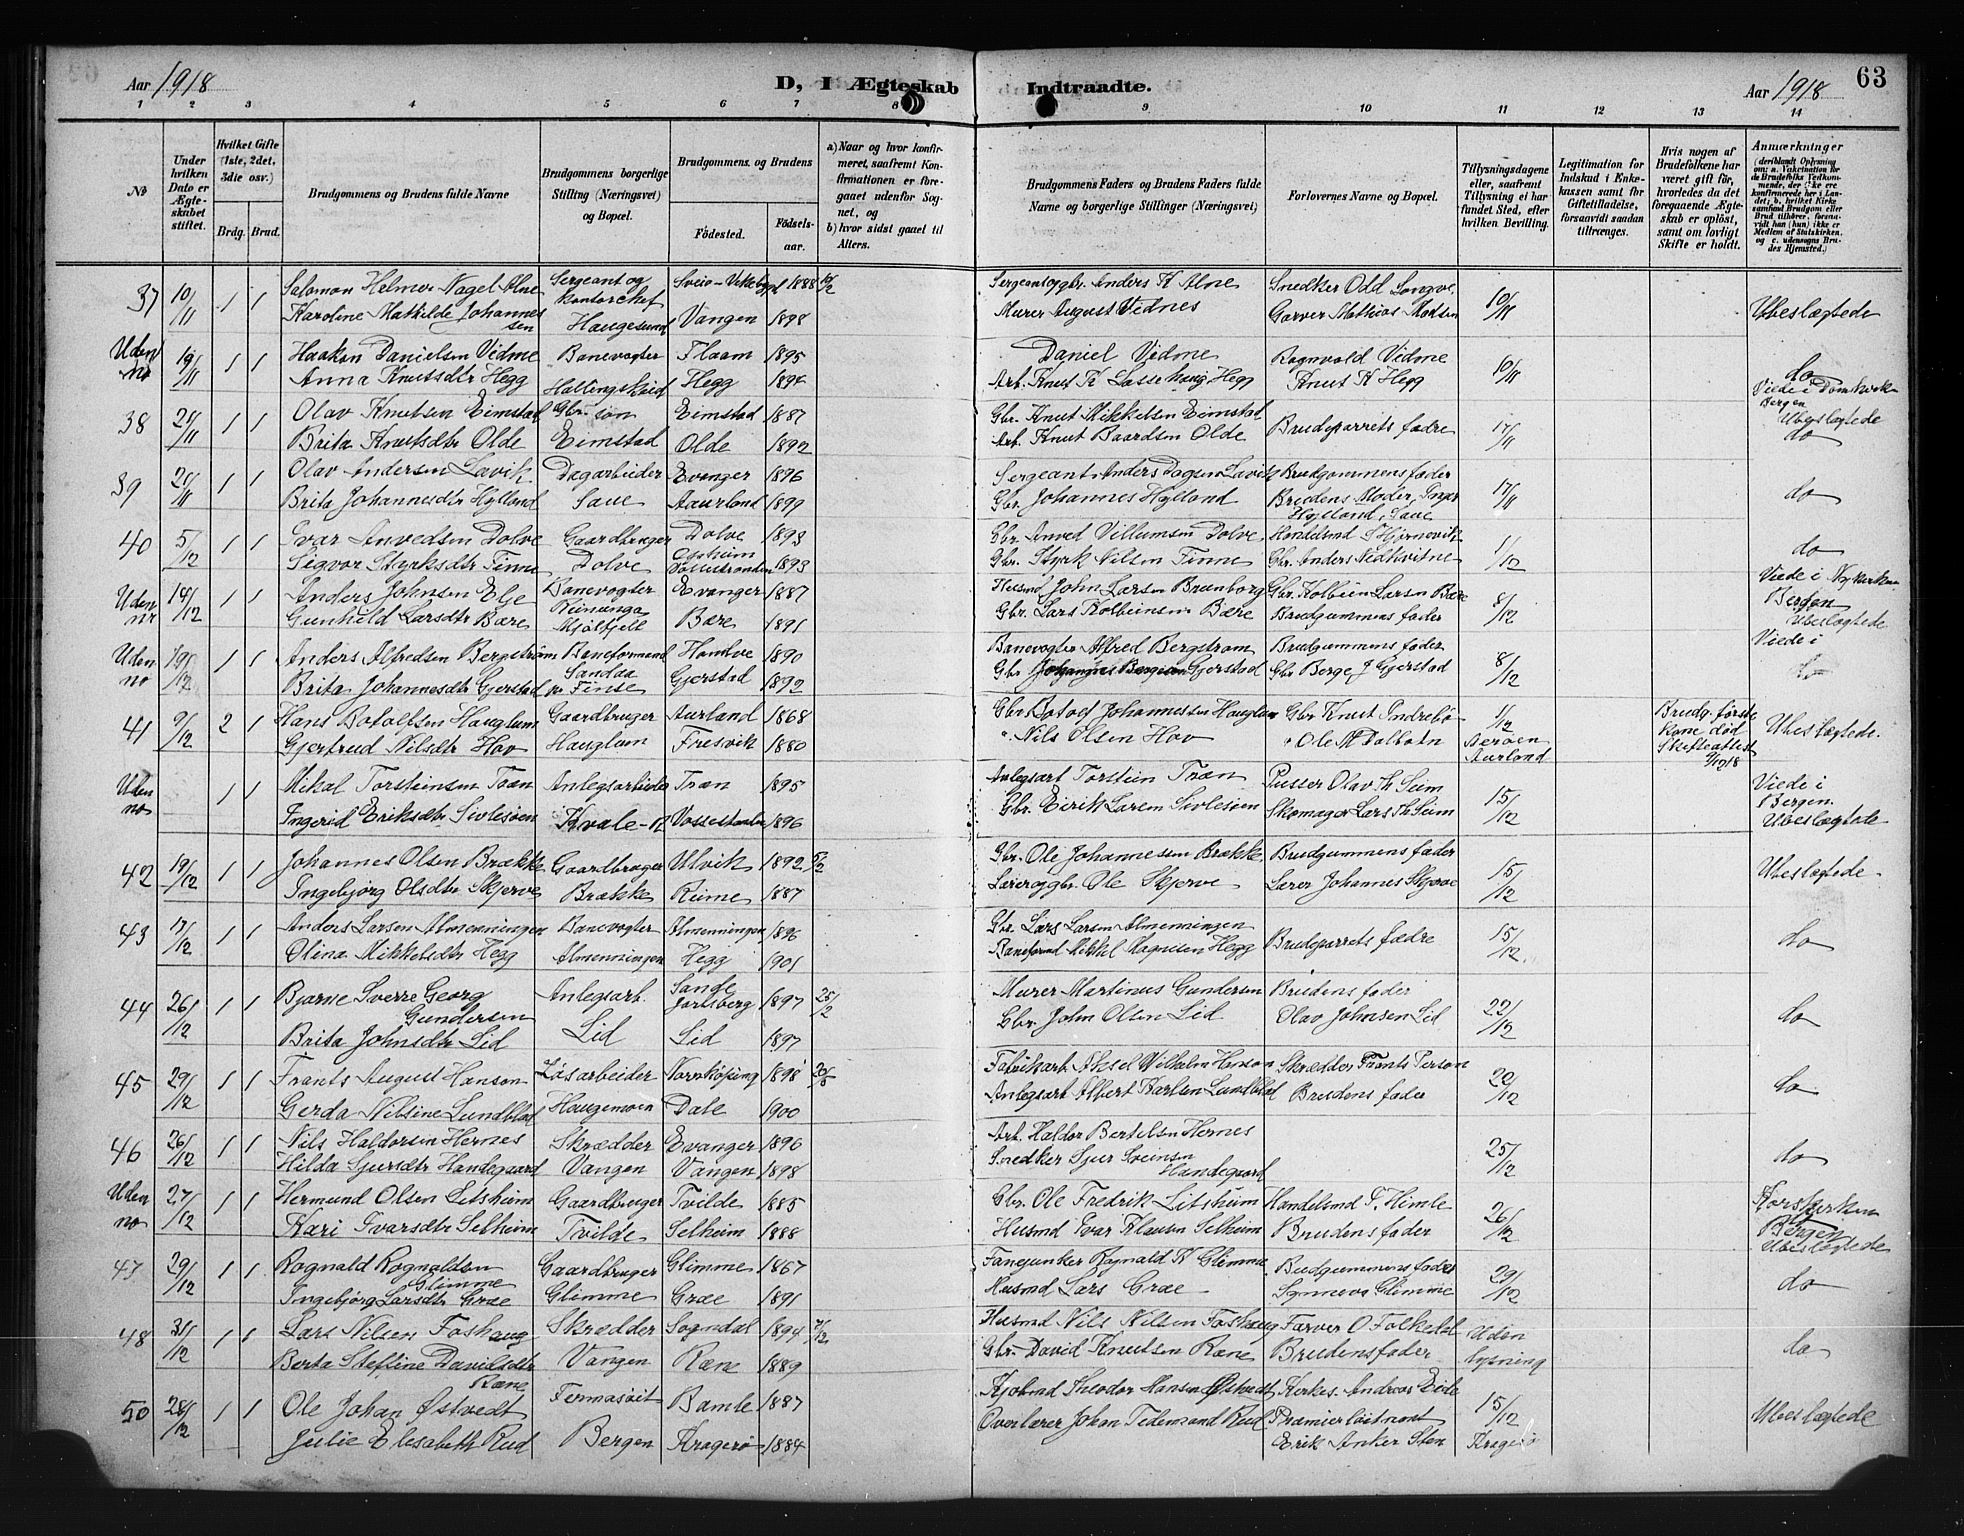 Aar 1918
D, I Ægteskab Indtraadte.
Aar 1918
63
1 2 3 4 5 6 7 8 9 10 11 12 13 14
№
Under hvilken Dato er Ægteskabet stiftet.
Hvilket Gifte (1ste, 2det, 3die osv.)
Brdg. Brud.
Brudgommens og Brudens fulde Navne
Brudgommens borgerlige Stilling (Næringsvei) og Bopæl.
Brudgommens og Brudens
Fødested.
Fødselsaar.
a) Naar og hvor konfirmeret, saafremt Konfirmationen er foregaaet udenfor Sognet, og
b) hvor sidst gaaet til Alters.
Brudgommens Faders og Brudens Faders fulde Navne og borgerlige Stillinger (Næringsvei)
Forlovernes Navne og Bopæl.
Tillysningsdagene eller, saafremt Tillysning ei har fundet Sted, efter hvilken Bevilling.
Legitimation for Indskud i Enkekassen samt for Giftetilladelse, forsaavidt saadan tiltrænges.
Hvis nogen af Brudefolkene har været gift før, hvorledes da det foregaaende Ægteskab er opløst, samt om lovligt Skifte er holdt.
Anmærkninger
37 10/11 1 1 Salomon Helmer Nagel Alne Sergeant og kontorchef 1888 Sergeant og gbr. Anders K Alne Snedker Odd Longve 10/11 Ubeslægtede
Karoline Mathilde Johannessen Haugesund Vangen 1898 Murer August Vidnes Garver Mathias Madsen
Uden no 19/11 1 1 Haakon Danielsen Vidme Banevogter Flaam 1895 Daniel Vidme Ragnvald Vidme 10/11 do
Anna Knutsdtr Hegg Hallingskeid Hegg 1894 Arb. Knut K Lassehaug Hegg Knut K Hegg Viede i Domkirk Bergen
38 21/11 1 1 Olav Knutsen Eimstad Gbr. søn Eimstad 1887 Gbr. Knut Mikkelsen Eimstad Brudeparrets fædre 17/11 Ubeslægtede
Brita Knutsdtr Olde Eimstad Olde 1892 Arb. Knut Baardsen Olde do
39 21/11 1 1 Olav Andersen Lavik Dagarbeider Evanger 1896 Sergeant Anders Dagsen Lavik Brudgommens fader 17/11 do
Brita Johannesdtr Hylland Saue Aurland 1899 Gbr. Johannes Hylland Brudens Moder, Inger Hylland, Saue
40 5/12 1 1 Ivar Anvedsen Dolve Gaardbruger Dolve 1893 Gbr. Anved Villumsen Dolve Handelsmd 1/12 do
Sigvor Styrksdtr Finne Dolve 1893 Gbr. Styrk Nilsen Finne Gbr. Anders Nedkvitne
Uden nr 14/12 1 1 Anders Johnsen Elje Banevogter Evanger 1887 John Larsen Brunborg Gbr Kolbein Larsen Bære 8/12 Viede i Nykirken Bergen
Gunhild Larsdtr Bære Mjølfjell Bære 1891 Gbr. Lars Kolbeinsen Bære Brudgummens fader Ubeslægtede
Uden no 19/12 1 1 Anders Alfredsen Bergstrøm Baneformand Hamlve 1890 Banevogter Alfred Bergstrøm Brudgummens fader 8/12 Viede i
Brita Johannesdtr Gjerstad Sandaa pr Finse Gjerstad 1892 Gbr Johannes Bergesen Gjerstad Gbr Berge J Gjerstad do
41 9/12 2 1 Hans Botolfsen Hauglum Gaardbruger Aurland 1868 Gbr. Botolf Johannessen Hauglum Gbr Knut Indrebø 1/12 Brudg. første kone død Skifteattest Ubeslægtede.
Gjertrud Nilsdtr Hov Hauglum Fresvik 1880 " Nils Olsen Hov " Ole M Dalbotn Aurland
Uden no 1 1 Mikal Torsteinsen Træn Anlegsarbeider Træn 1895 Anlegsarb Torstein Træn Pusser Olav Th Seim 15/12 Viede i Bergen.
Ingerid Eriksdtr Sivlesøen Kvale 1896 Gbr. Eirik Larsen Sivlesøen Skomager Lars Th Seim Ubeslægtede
42 19/12 1 1 Johannes Olsen Brække Gaardbruger Ulvik 1892 Gbr. Ole Johannessen Brække Brudgummens fader 15/12 Ubeslægtede.
Ingebjørg Olsdtr Skjerve Brække Reime 1887 Lærer og gbr. Ole Skjerve Lærer Johannes Skjerve
43 17/12 1 1 Anders Larsen Almenningen Banevogter Almenningen 1896 Gbr. Lars Larsen Almenningen Brudeparrets fædre 15/12 do
Olina Mikkelsdtr Hegg Almenningen Hegg 1901 Baneformd Mikkel Magnesen Hegg
44 26/12 1 1 Bjarne Sverre Georg Gundersen Anlegsarb. Sande Jarlsberg 1897 Murer Martinus Gundersen Brudens fader 22/12 do
Brita Johnsdtr Lid Lid Lid 1897 Gbr. John Olsen Lid Olav Johnsen Lid
45 29/12 1 1 Frants August Hanson Løsarbeider Norrköping 1898 Fabrikarb Aksel Wilhelm Hanson Skrædder Frants Person 22/12 do
Gerda Nilsine Lundblad Haugemoen Dale 1900 Anlegsarb Albert Karlsen Lundblad Brudens fader
46 26/12 1 1 Nils Haldorsen Hernes Skrædder Evanger 1890 Arb. Haldor Bertelsen Hernes 25/12 do
Hilda Sjursdtr Handegaard Vangen Vangen 1898 Snedker Sjur Sveinsen Handegaard
Uden no 27/12 1 1 Hermund Olsen Litsheim Gaardbruger Tvilde 1885 Gbr. Ole Fredrik Litsheim Handelsmd P. Himle 26/12 Korskirken Bergen
Kari Ivarsdtr Selheim Tvilde Selheim 1888 Husmd Ivar Klausen Selheim Brudens fader Ubeslægtede
47 29/12 1 1 Rognald Rognaldsen Glimme Gaardbruger Glimme 1867 Fanejunker Rognald K Glimme Brudgummens fader 29/12 do
Ingebjørg Larsdtr Græe Glimme Græe 1891 Husmd Lars Græe Synneva Glimme
48 31/12 1 1 Lars Nilsen Foshaug Skrædder Sogndal 1894 Husmd Nils Nilsen Foshaug Farver O Folkedal Uden lysning do
Berta Stefine Davidsdtr Ræne Vangen Ræne 1889 Gbr. David Knutsen Ræne Brudens fader
50 28/12 1 1 Ole Johan Østvedt Bamle 1887 Kjøbmd Theodor Hansen Østvedt Kirkes. Andreas Eide 15/12 Kragerø Ubeslægtede
Julie Elisabeth Rud Bergen Kragerø 1884 Overlærer Johan Tidemand Rud Premierløitnant Erik Anker Sten